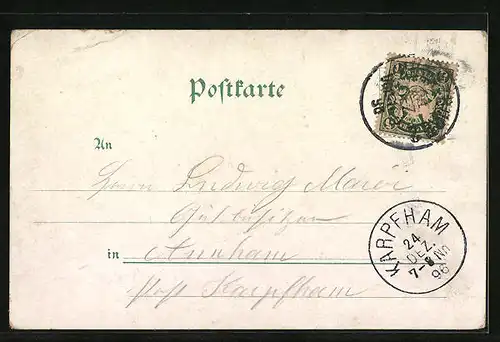 Postkarte
An
Herrn Ludwig Maier
Gutsbesitzer
in Annham
Post Karpfham
KARPFHAM
24
DEZ.
7-8 NS
96